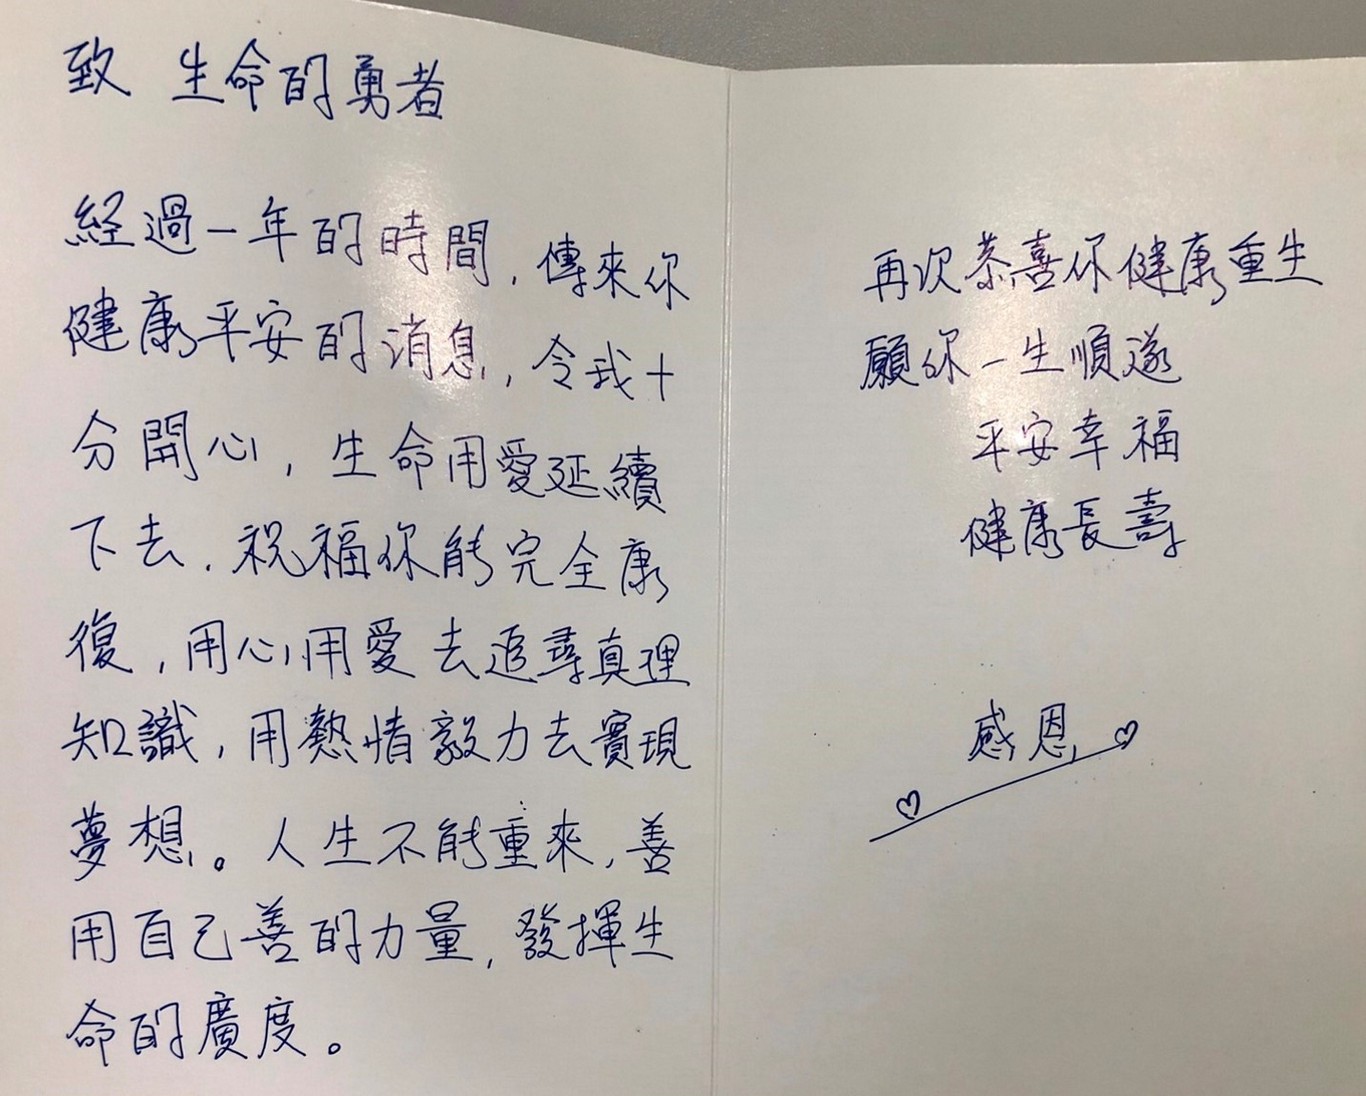 致 生命的勇者
經過一年的時間,傳來你
健康平安的消息,令我十
分開心,生命用愛延續
下去.祝福你能完全康
復,用心用愛去追尋真理
知識,用熱情毅力去實現
夢想。人生不能重來,善
用自己善的力量,發揮生
命的廣度。
再次恭喜你健康重生
願你一生順遂
平安幸福
健康長壽
感恩